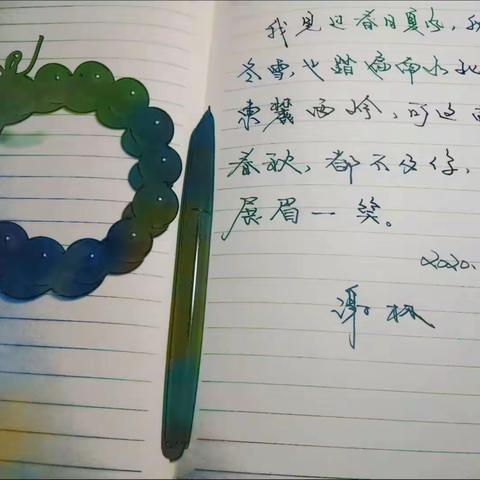 我见过春日夏风,
冬雪,也踏遍南水北
東麓西岭,可这
春秋,都不及你,
展眉一笑。
2020.
谢林